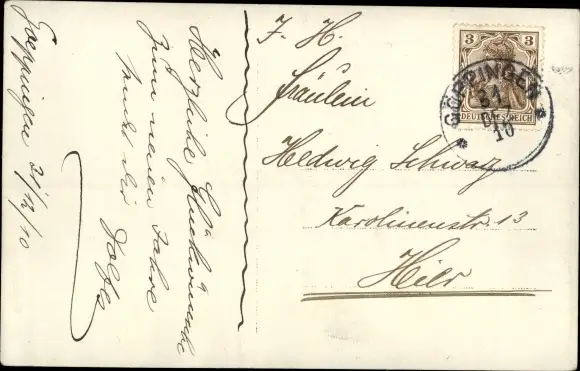 Goeppingen 31/12/10
Herzliche Glückwünsche
zum neuen Jahre
F. H.
Fräulein
Hedwig Schwarz
Karolinenstr. 13
Hier
3 3
DEUTSCHES REICH
GÖPPINGEN
31
DEZ
10